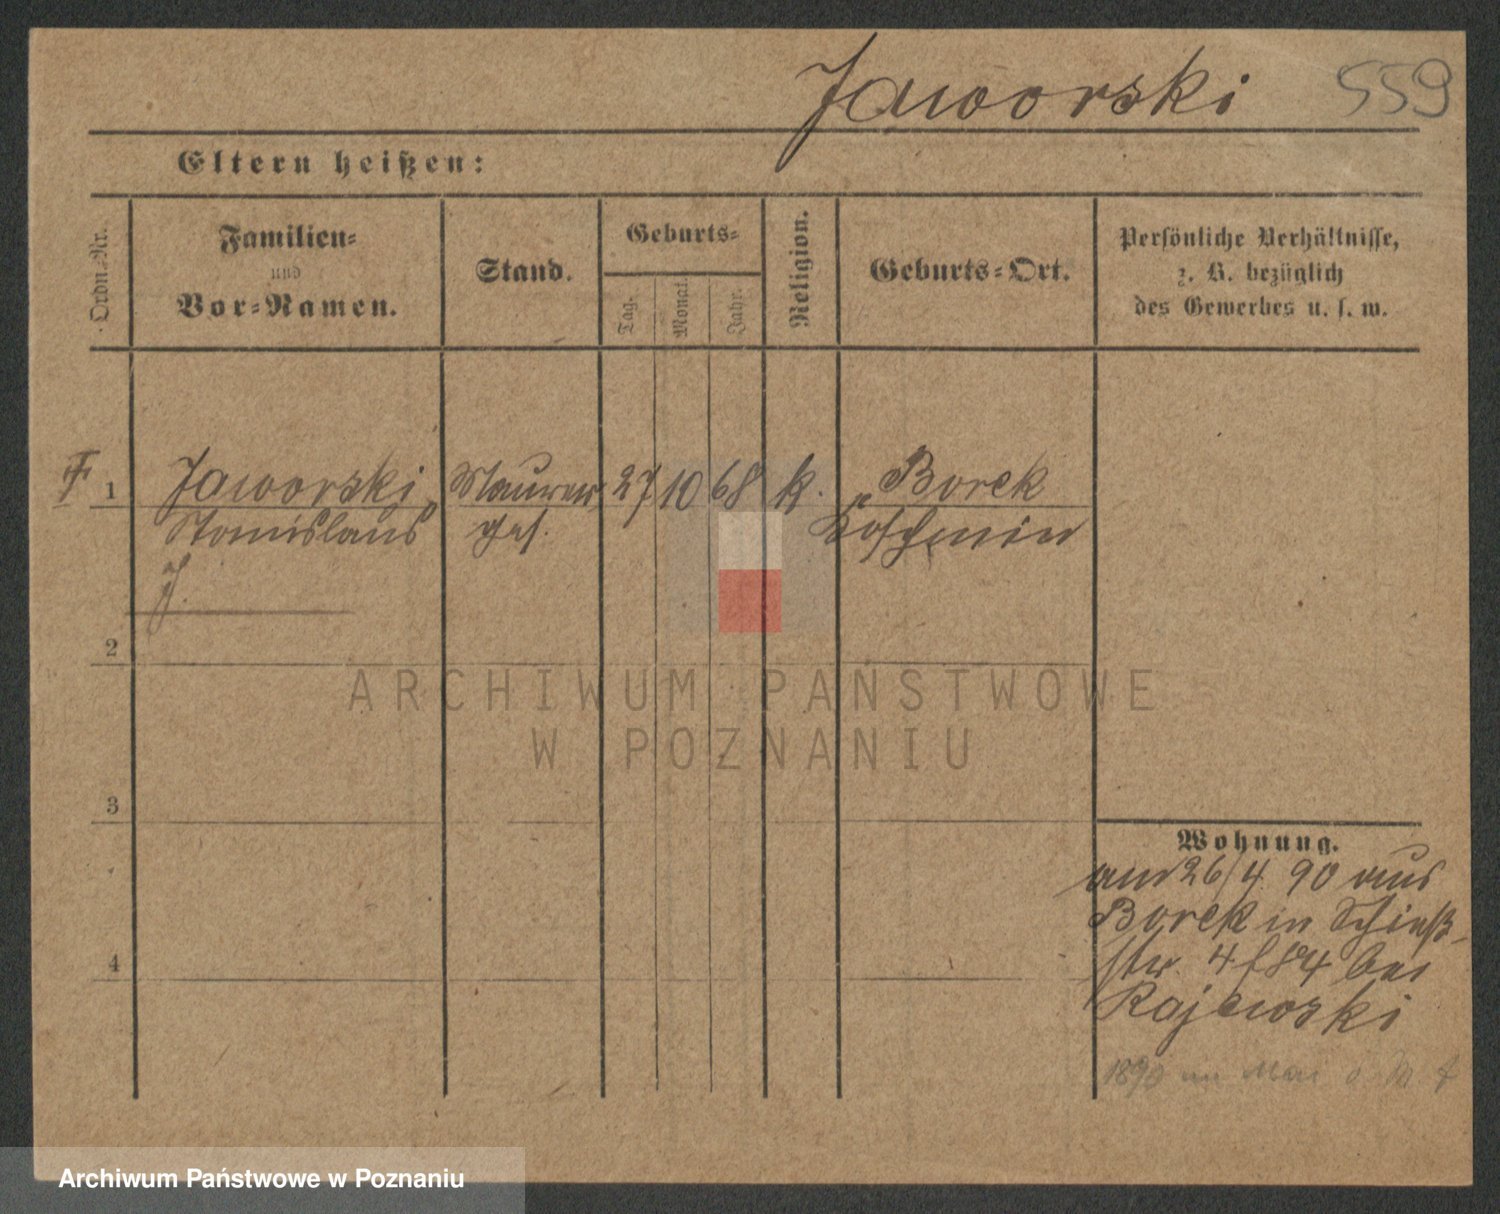 Jaworski 559
Eltern heißen:
Ordn.-Nr.
Familien-
und
Vor-Namen.
Stand.
Geburts-
Tag.
Monat.
Jahr.
Religion.
Geburts-Ort.
Persönliche Verhältnisse,
z. B. bezüglich
des Gewerbes u. s. w.
1 Jaworski Maurer 27 10 68 k. Borek
Stanislaus ges. Koschmin
2
3
4
Wohnung.
am 26/4 90 aus
Borek in Schieß-
str. 4 bei
Rajewski
1890 im
ARCHIWUM PAŃSTWOWE
W POZNANIU
Archiwum Państwowe w Poznaniu